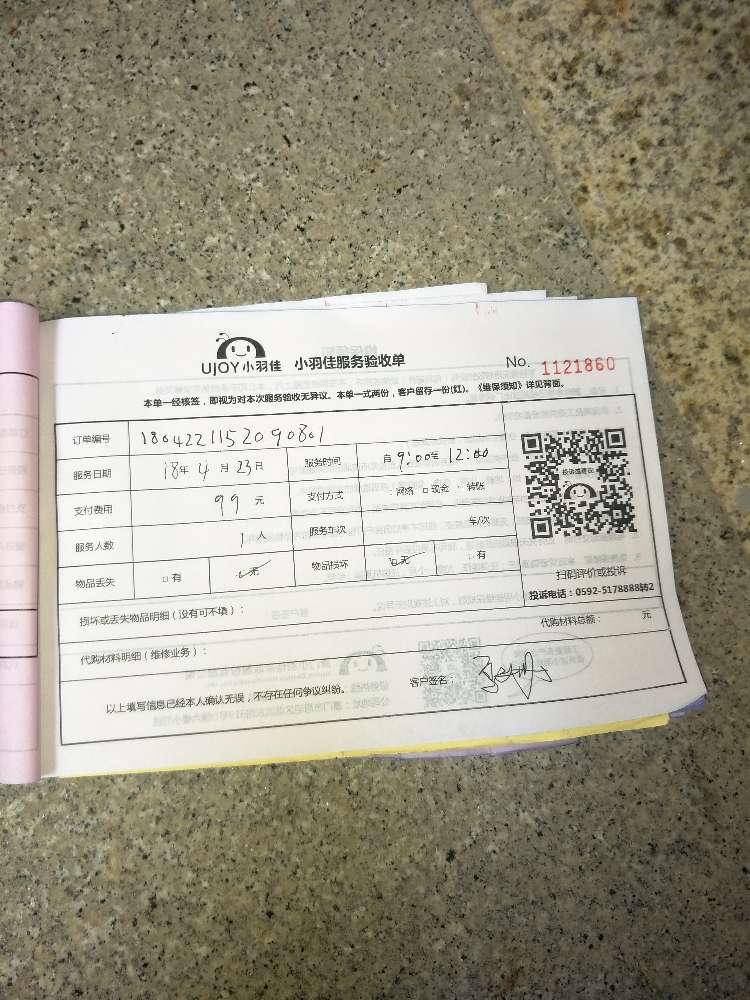 UJOY小羽佳 小羽佳服务验收单 No. 1121860
本单一经核签，即视为对本次服务验收无异议。本单一式两份，客户留存一份(红)。《维保须知》详见背面。
订单编号 180422115209 0801
服务日期 18年 4 月 23 日 服务时间 自 9:00 至 12:00
支付费用 99 元 支付方式 网络 □现金 转账
服务人数 1 人 服务车次 车/次
物品丢失 □有 □无 物品损坏 □无 有
扫码评价或投诉
损坏或丢失物品明细（没有可不填）： 投诉电话：0592-5178888转2
代购材料明细（维修业务）： 代购材料总额： 元
以上填写信息已经本人确认无误，不存在任何争议纠纷。 客户签名：